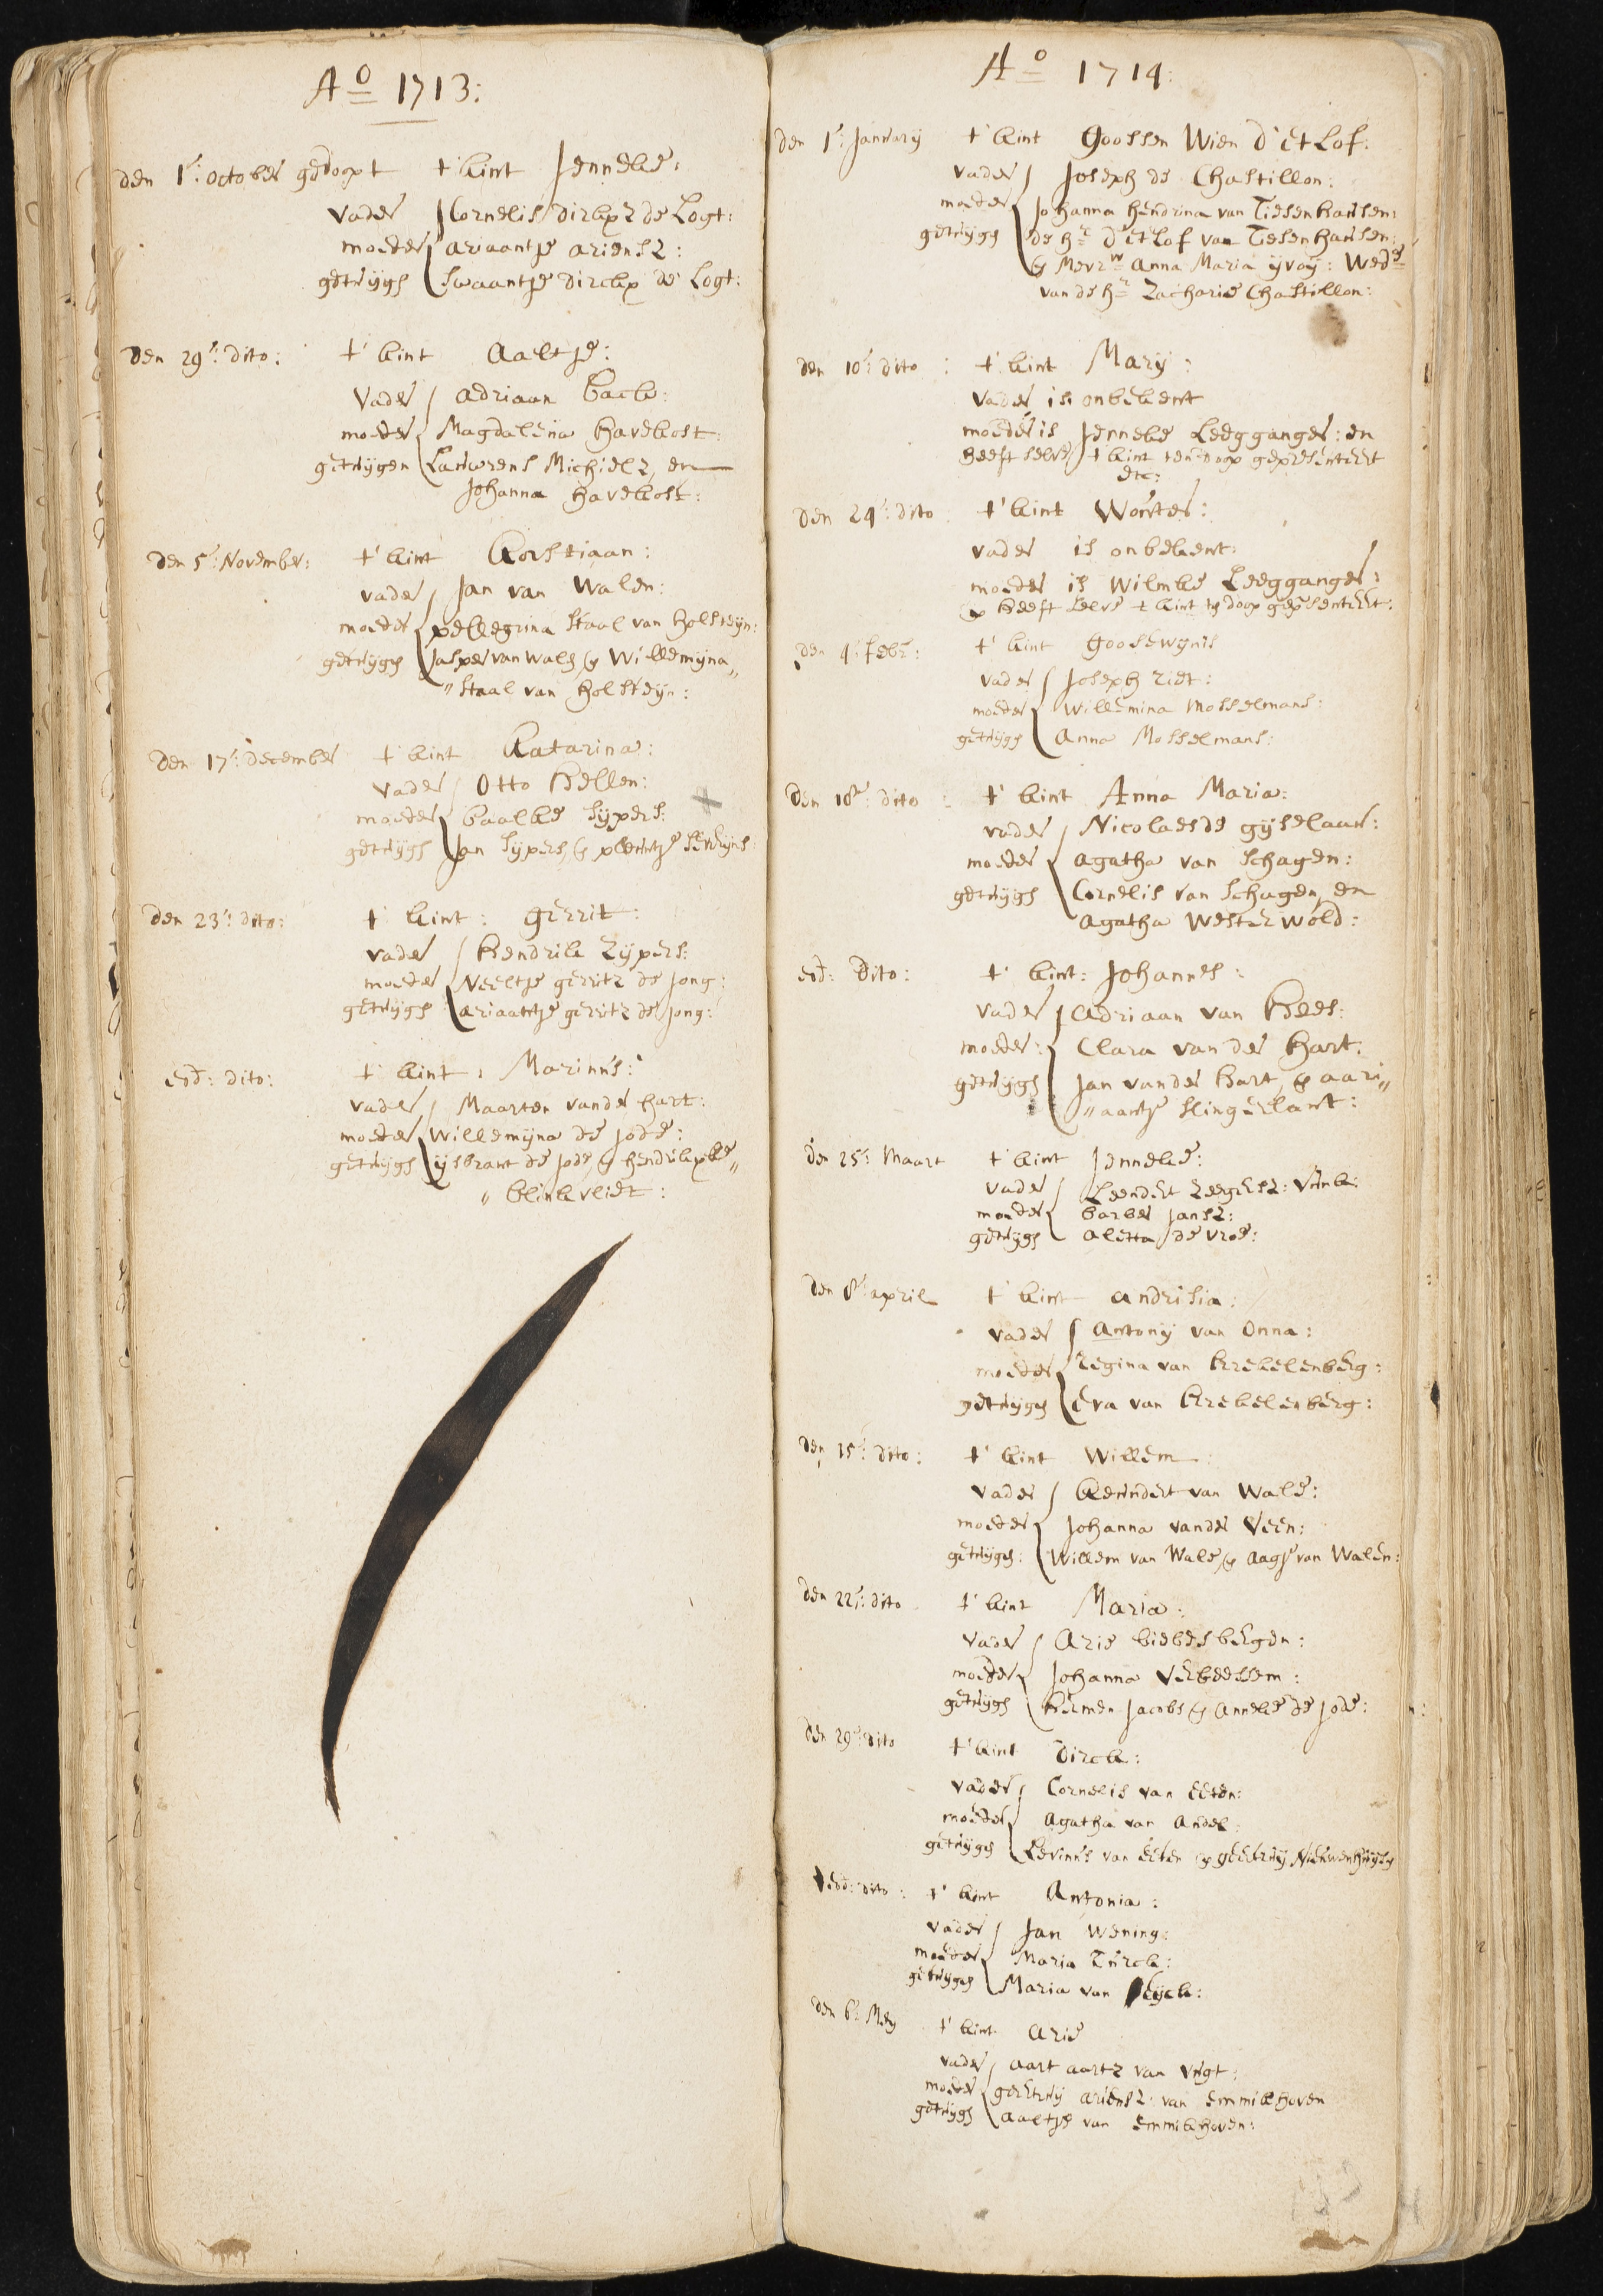 Ao 1713:
den 1e: october gedoopt t' kint Jenneke:
vader Cornelis dirkxz de Logt:
moeder ariaantje ariensz:
getuijgs Swaantje dirckx de Logt:
den 29e: dito: t' kint Aaltje:
vader adriaan back:
moeder Magdalena Havekost:
getuijgen Lauwrens Michielz, en
Johanna Havekost:
den 5e: November: t' kint Korstiaan:
vader Jan van Walen:
moeder pellegrina Staal van holsteijn:
getuijges Jasper van Wals, & Willemijna„
„Staal van holsteijn:
den 17e: december t' kint Katarina:
vader Otto Hellen:
moeder baalke Sijpers:
getuijgs Jan Sijpers, & pleuntje
den 23e: dito: t' kint: gerrit:
vader Hendrik Zijpers:
moeder Neeltje gerritz de Jong:
getuijgs ariaantje gerritz de Jong:
eod: dito: t' kint: Marinus:
vader Maarten vander hart:
moeder Willemijna de Jode:
getuijgs ijsbrant de Jode, & hendrikxke„
„blinkvliet:
Ao 1714:
den 1e: January t' kint Goossen Wien d'etLof:
vader Joseph de Chastillon:
moeder Johanna hendrina van Tiesenhausen:
getuijgs de hr: d'etLof van Tiesenhausen:
& Mevrw: anna Maria ijvoij: Wede
van de hr: Zacharie Chastillon:
den 10e: dito: t' kint Marij:
vader is onbekent
moeder is Jenneke Leegganger: en
heeft selve t kint ten doop gepresenteert
etc:
den 24e: dito t' kint Wouter:
vader is onbekent:
moeder is Wilmke Leegganger:
& heeft selve t kint ten doop gepresenteert:
den 4e: febr: t' kint goosewynis
vader Joseph riet:
moeder Willemina Mosselmans:
getuijgs Anna Mosselmans:
den 18e: dito: t' kint Anna Maria:
vader Nicolaes de gijselaar:
moeder agatha van Schagen:
getuijgs Cornelis van Schagen, en
agatha Westerwold:
eod: dito: t' kint: Johannes:
vader adriaan van Hees:
moeder: Clara van der Hart:
getuijgs Jan vander Hart, & aari„
„aantje slingerlant:
den 25e: Maart t' kint Jenneke:
vader Leendert Zegersz: Vink:
moeder barber Jansz:
getuijgs aletta de vroe:
den 8e: april t' kint andrisia:
vader Antonij van Onna:
moeder regina van Krekelenberg:
getuijges Eva van Krekelenberg:
den 15e: dito: t' kint Willem:
vader Leendert van Wale:
moeder Johanna vander Veen:
getuijges: Willem van Wale, & Aagje van Walen:
den 22e: dito t' kint Maria:
vader Arie biebesbergen:
moeder Johanna Verbeessem:
getuijgs Hermen Jacobs & Anneke de Jode:
den 29e: dito t' kint Dirck:
vader Cornelis van Eeten:
moeder Agatha van Andel:
getuijges Levinus van Eeten & geertruij Nieuwenhuijsen
eod: dito: t' kint Antonia:
vader Jan Wening:
moeder Maria Turck:
getuijges Maria van Eijck:
den 6e: Meij t' kint Arie
vader aart aartz van Vugt:
moeder geertruij ariensz: van Emmikhoven
getuijgs aaltje van Emmikhoven: